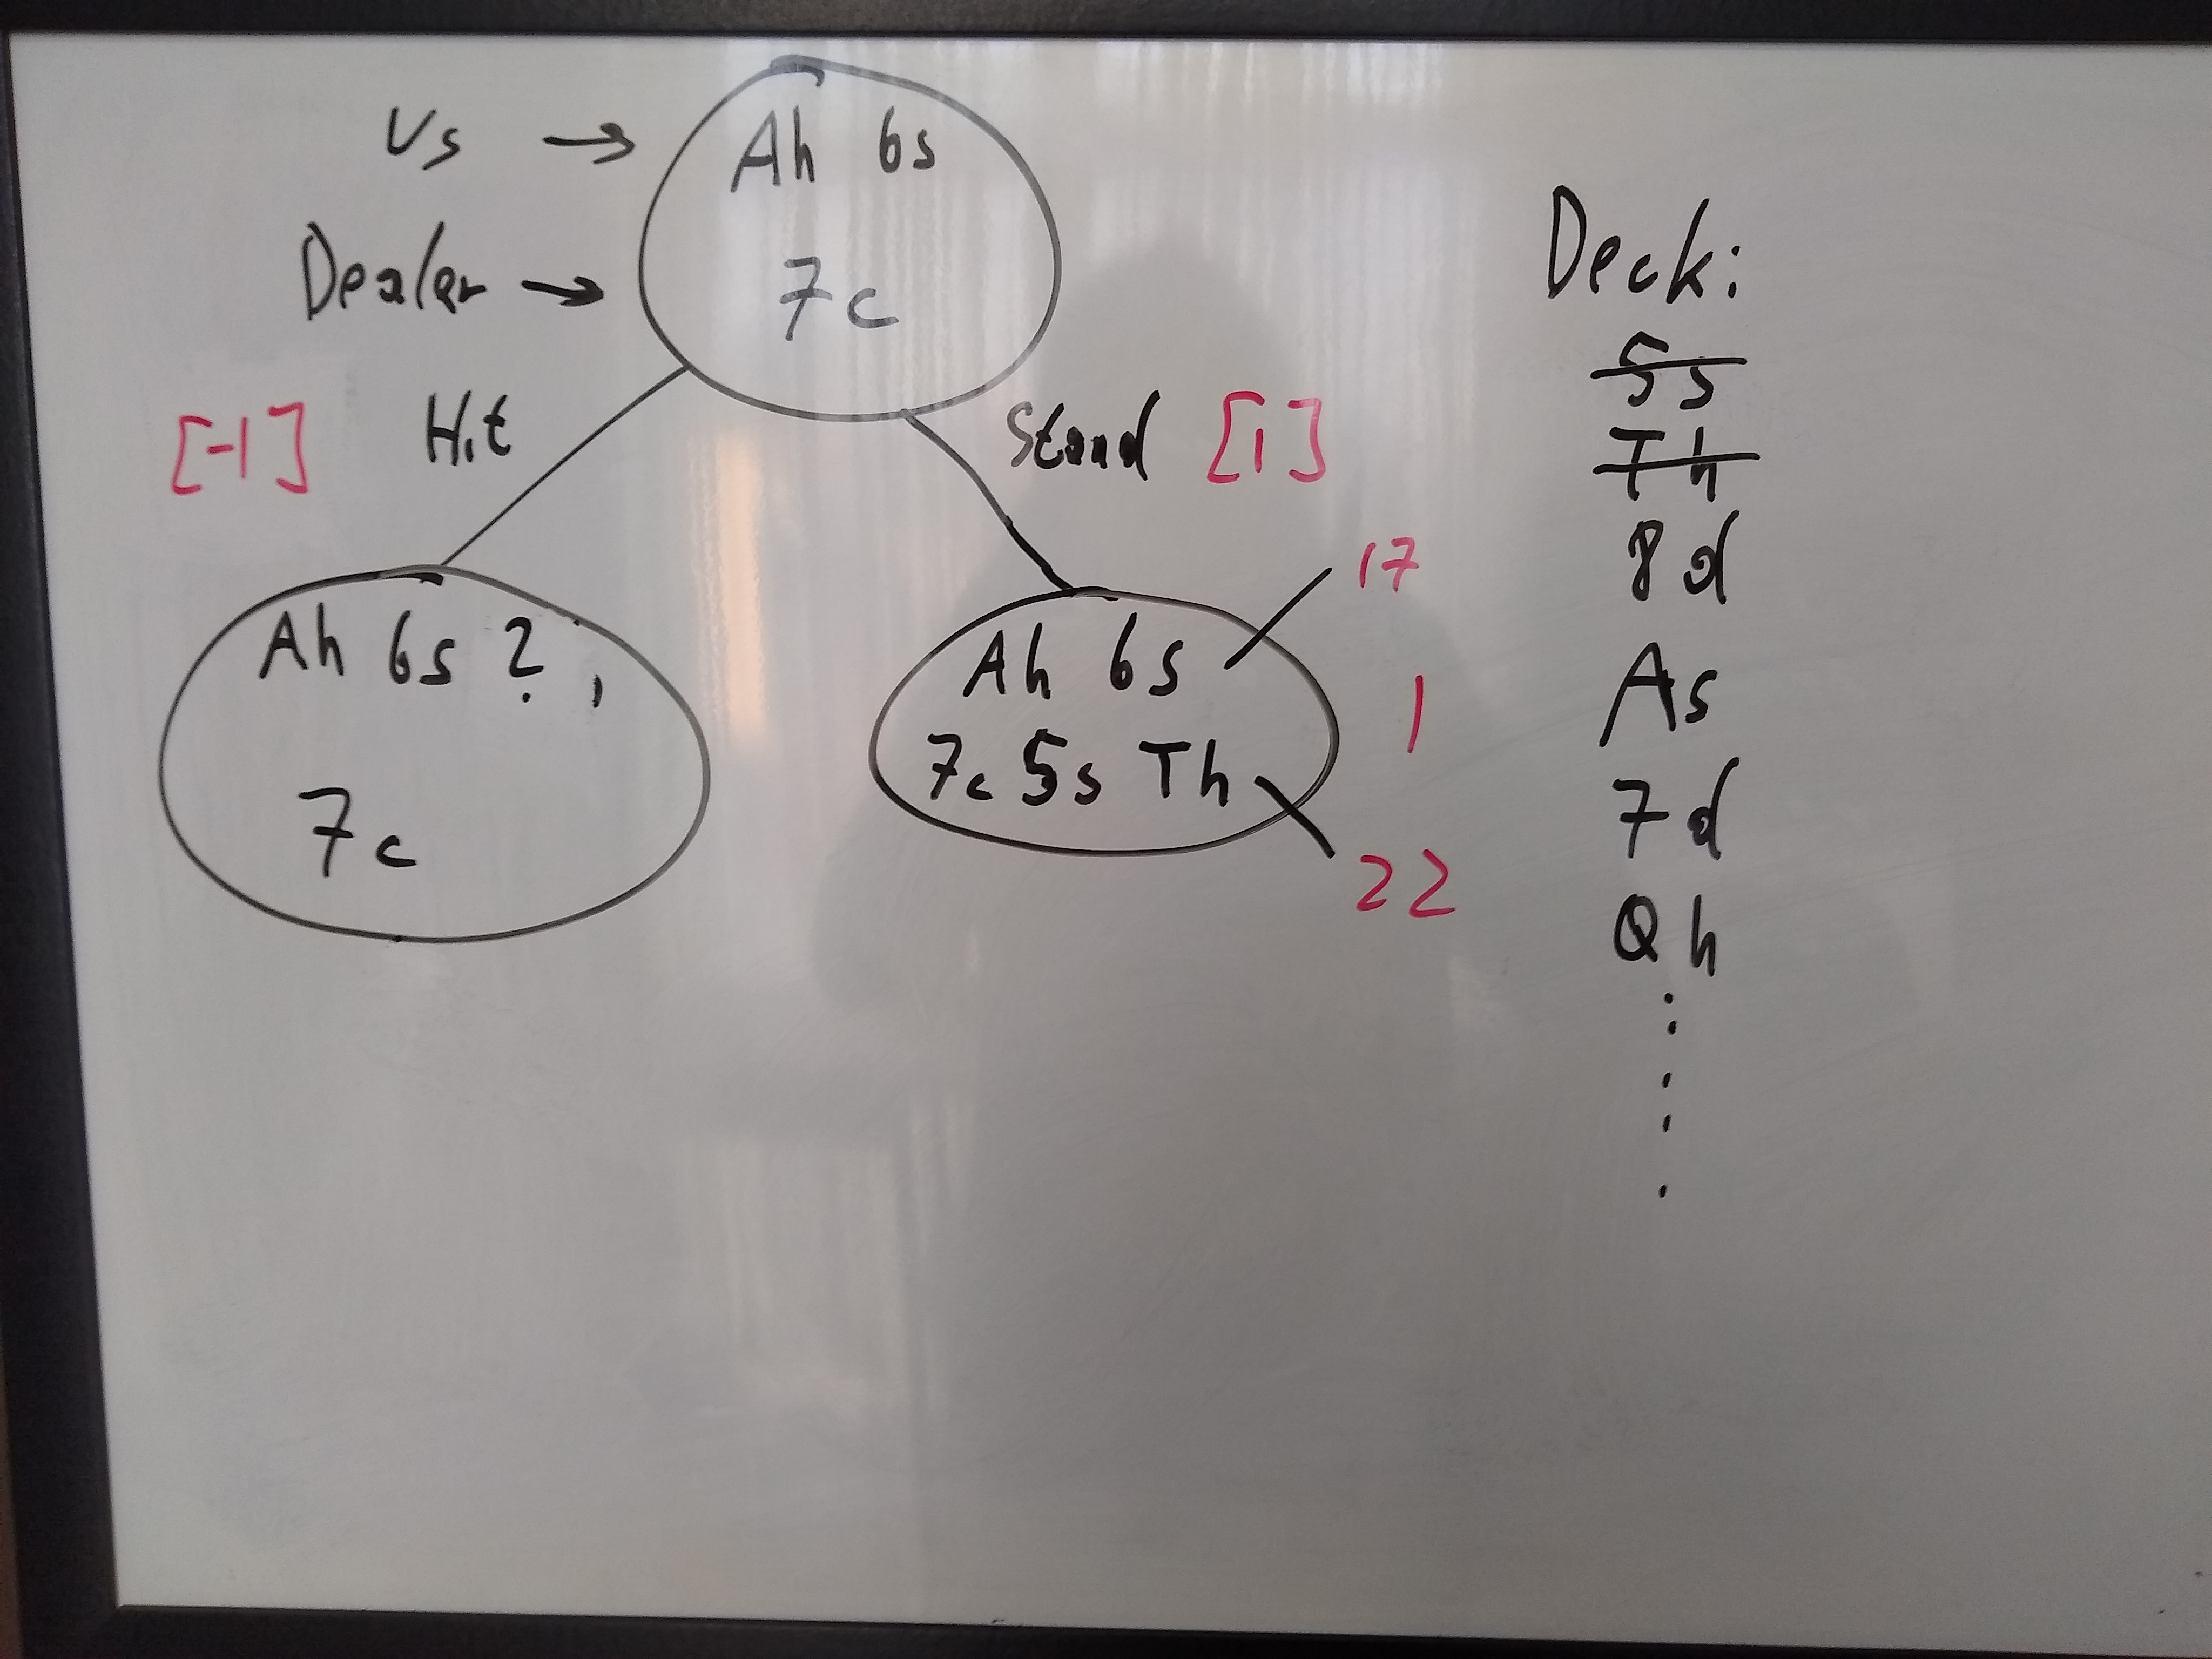 Us → Ah 6s
Dealer → 7c
[-1] Hit
Stand [1]
Ah 6s ?,
7c
Ah 6s
7c 5s Th
17
1
22
Deck:
5s
Th
8d
As
7d
Qh